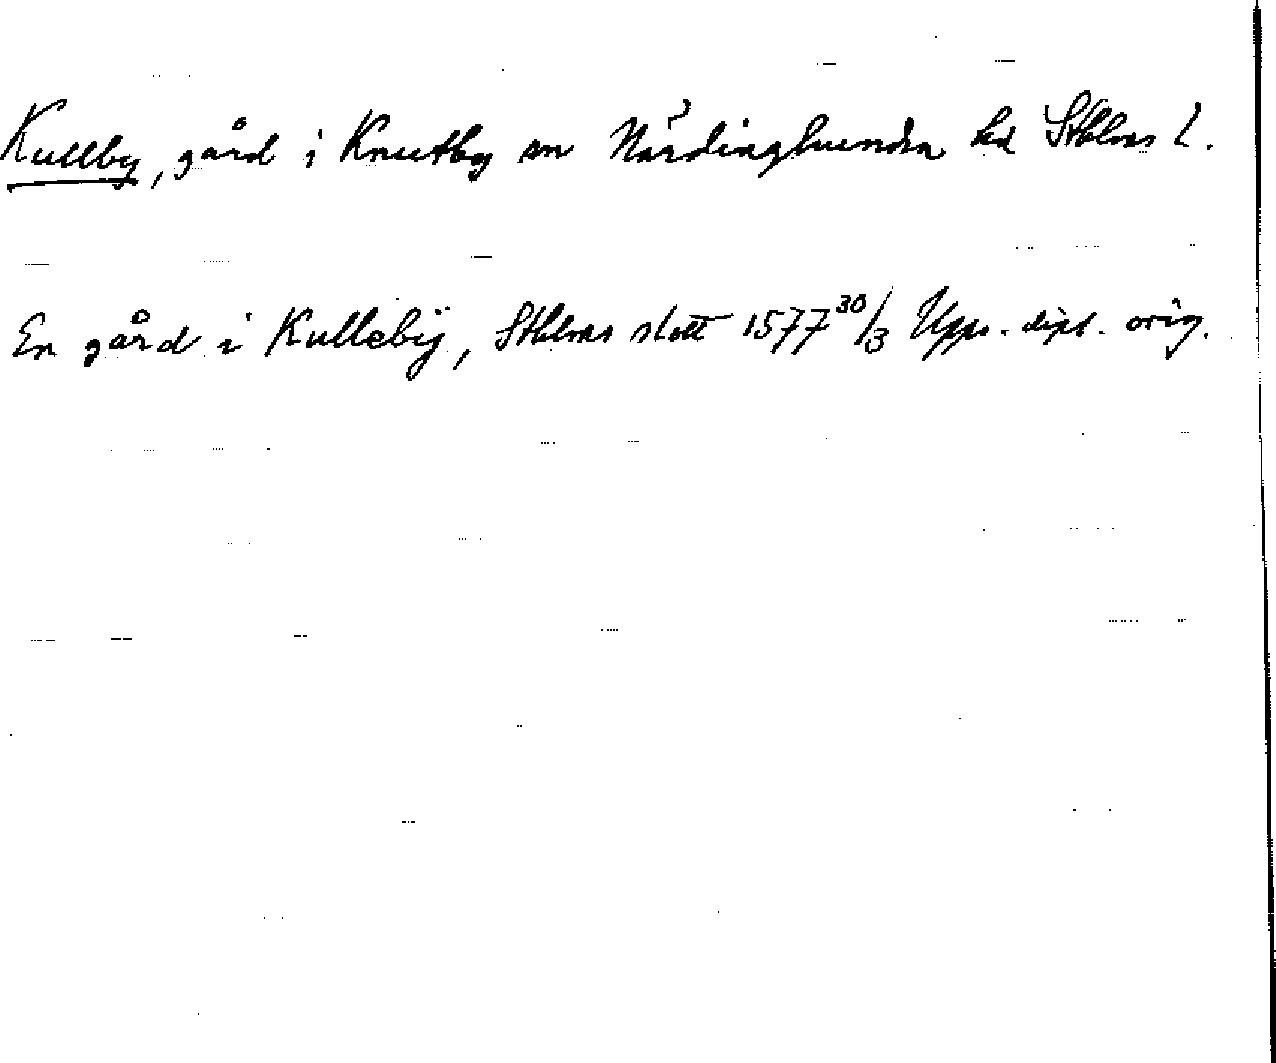 Kullby, gård i Knutby sn Närdinghundra hd Sthlms l.
En gård i Kullebÿ, Sthlms slott 1577 30/3 Upps. dipl. orig.